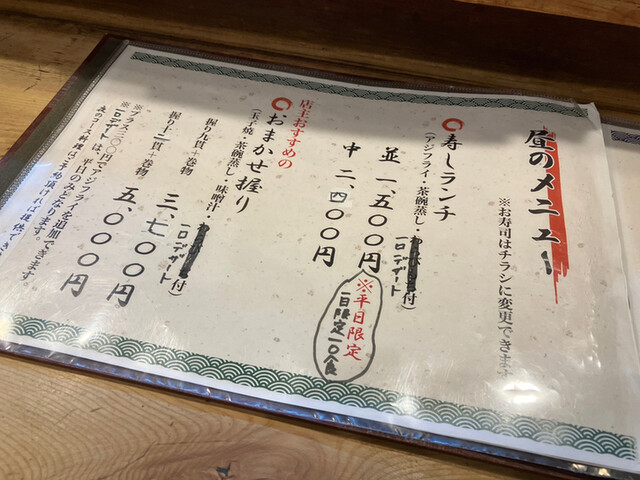 昼のメニュー
※お寿司はチラシに変更できます
寿しランチ
(アジフライ・茶碗蒸し・一口デザート付)
並 一、五〇〇円
※平日限定
一日限定一〇食
中 二、四〇〇円
店主おすすめの
おまかせ握り
(玉子焼・茶碗蒸し・味噌汁・一口デザート付)
握り九貫+巻物 三、七〇〇円
握り十二貫+巻物 五、〇〇〇円
※プラス三〇〇円でアジフライを追加できます。
※一口デザートは、平日のみとなります。
夜のコース料理はご予約頂ければ提供でき